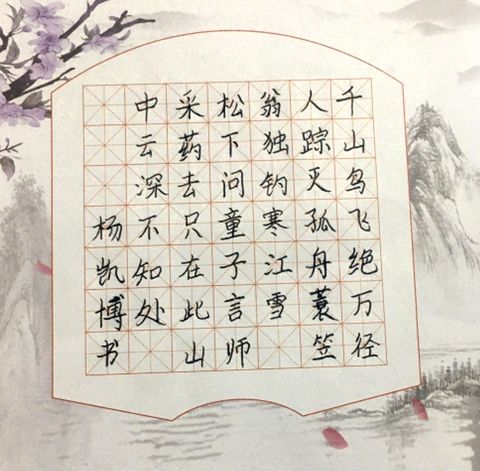 千山鸟飞绝万径
人踪灭孤舟蓑笠
翁独钓寒江雪
松下问童子言师
采药去只在此山
中云深不知处
杨凯博书